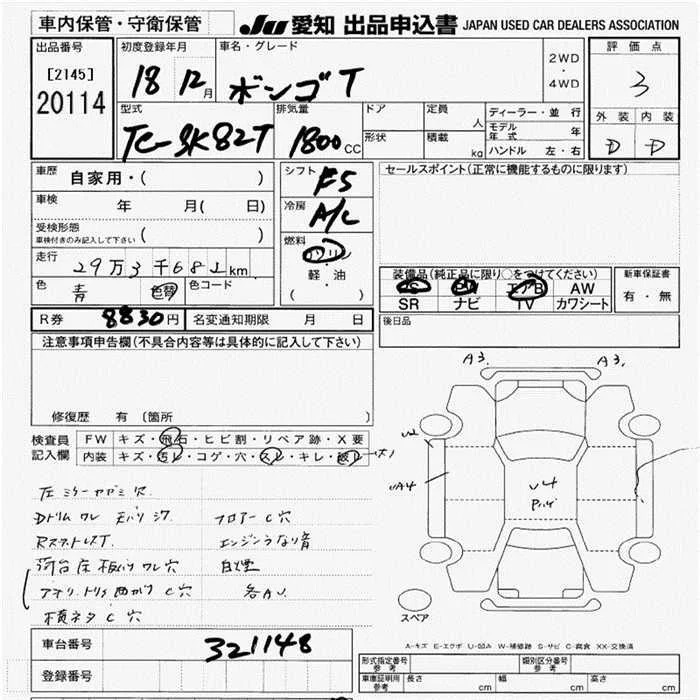 車内保管・守衛保管
JU 愛知 出品申込書 JAPAN USED CAR DEALERS ASSOCIATION
出品番号
[2145]
20114
初度登録年月
18 12月
車名・グレード
ボンゴT
2WD
・
4WD
評価点
3
外装 内装
D D
型式
TC-SK82T
排気量
1800cc
ドア
形状
定員 人
積載 kg
ディーラー・並行
モデル年式 年
ハンドル 左・右
車歴
自家用・( )
車検
年 月( 日)
受検形態
車検付きのみ記入して下さい ( )
走行
29万3千681km
色
青
色替
色コード
シフト
F5
冷房
A/C
燃料
ガソリン
・
軽・油
( )
セールスポイント(正常に機能するものに限ります)
装備品(純正品に限り○をつけてください)
PS PW エアB AW
SR ナビ TV カワシート
新車保証書
有・無
後日品
R券 8830円
名変通知期限 月 日
注意事項申告欄(不具合内容等は具体的に記入して下さい)
修復歴 有 〔箇所 〕
検査員
記入欄
FW キズ・飛石・ヒビ割・リペア跡・X要
内装 キズ・汚レ・コゲ・穴・スレ・キレ・破レ
フロアー C穴
エンジンうなり音
A3. A3.
U2
UA4
U4
スペア
A-キズ E-エクボ U-凹み W-補修跡 S-サビ C-腐食 XX-交換済
車台番号
321148
登録番号
形式指定番号
参考
類別区分番号
参考
車庫証明用
参考
長さ cm
幅 cm
高さ cm